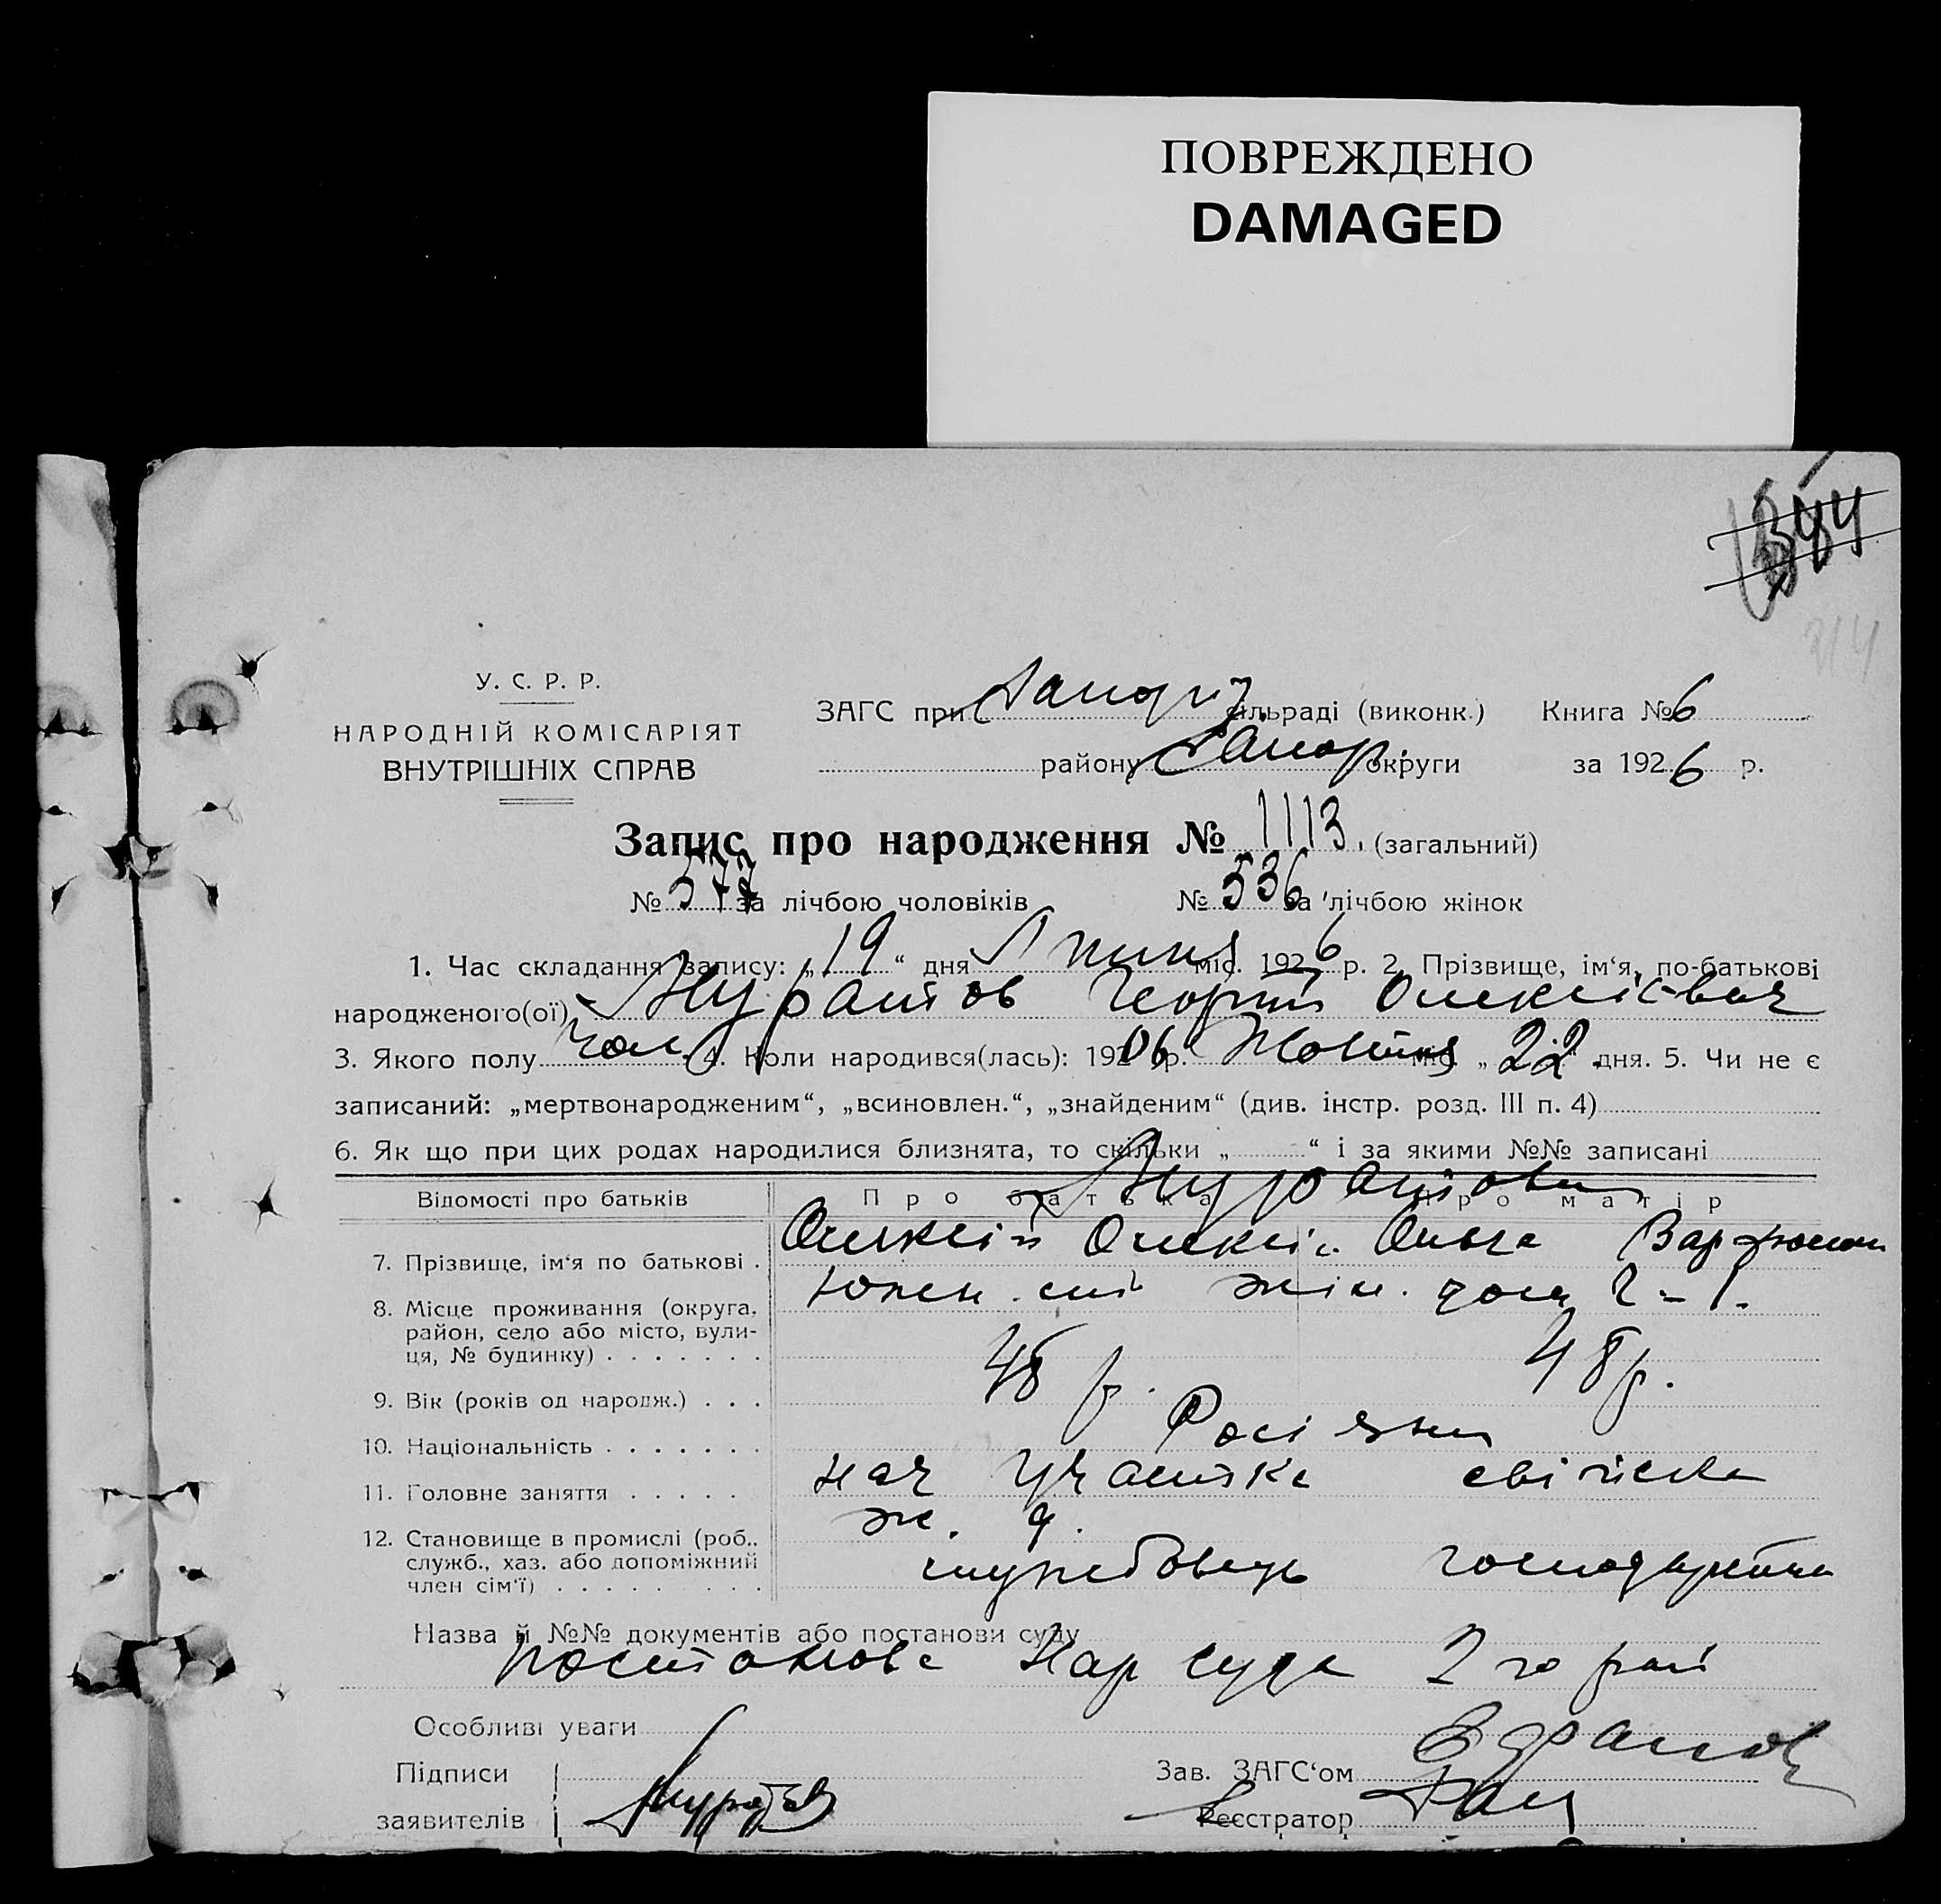 ПОВРЕЖДЕНО
DAMAGED
344
314
У. С. Р. Р.
НАРОДНІЙ КОМІСАРІЯТ
ВНУТРІШНІХ СПРАВ
ЗАГС при Запоріз. сільраді (виконк.) Книга № 6
району Запор. округи за 1926 р.
Запис про народження № 1113. (загальний)
№ 577 за лічбою чоловіків № 536 за лічбою жінок
1. Час складання запису: „19“ дня Липня міс. 1926 р. 2. Прізвище, ім‘я, по-батькові
народженого(ої) Муратов Георгій Олексієвич
3. Якого полу чол. 4. Коли народився(лась): 1906 р. Жовтня міс. „22“ дня. 5. Чи не є
записаний: „мертвонародженим“, „всиновлен.“, „знайденим“ (див. інстр. розд. III п. 4)
6. Як що при цих родах народилися близнята, то скільки „ “ і за якими №№ записані
Муратови
Відомості про батьків Про батька Про матір
7. Прізвище, ім‘я по батькові . Олексій Олексій. Ольга
8. Місце проживання (округа, район, село або місто, вулиця, № будинку) . . . . . . . Южен. жін. дом 2-1.
9. Вік (років од народж.) . . . 48 р. 48 р.
10. Національність . . . . . . . Росіяни
11. Головне заняття . . . . . нач участка ж. д.
12. Становище в промислі (роб., служб., хаз. або допоміжний член сім‘ї) . . . . . . . . . службовець
Назва й №№ документів або постанови суду
постанова Нар суда 2 го рай
Особливі уваги
Підписи Зав. ЗАГС‘ом
заявителів Муратов Реєстратор